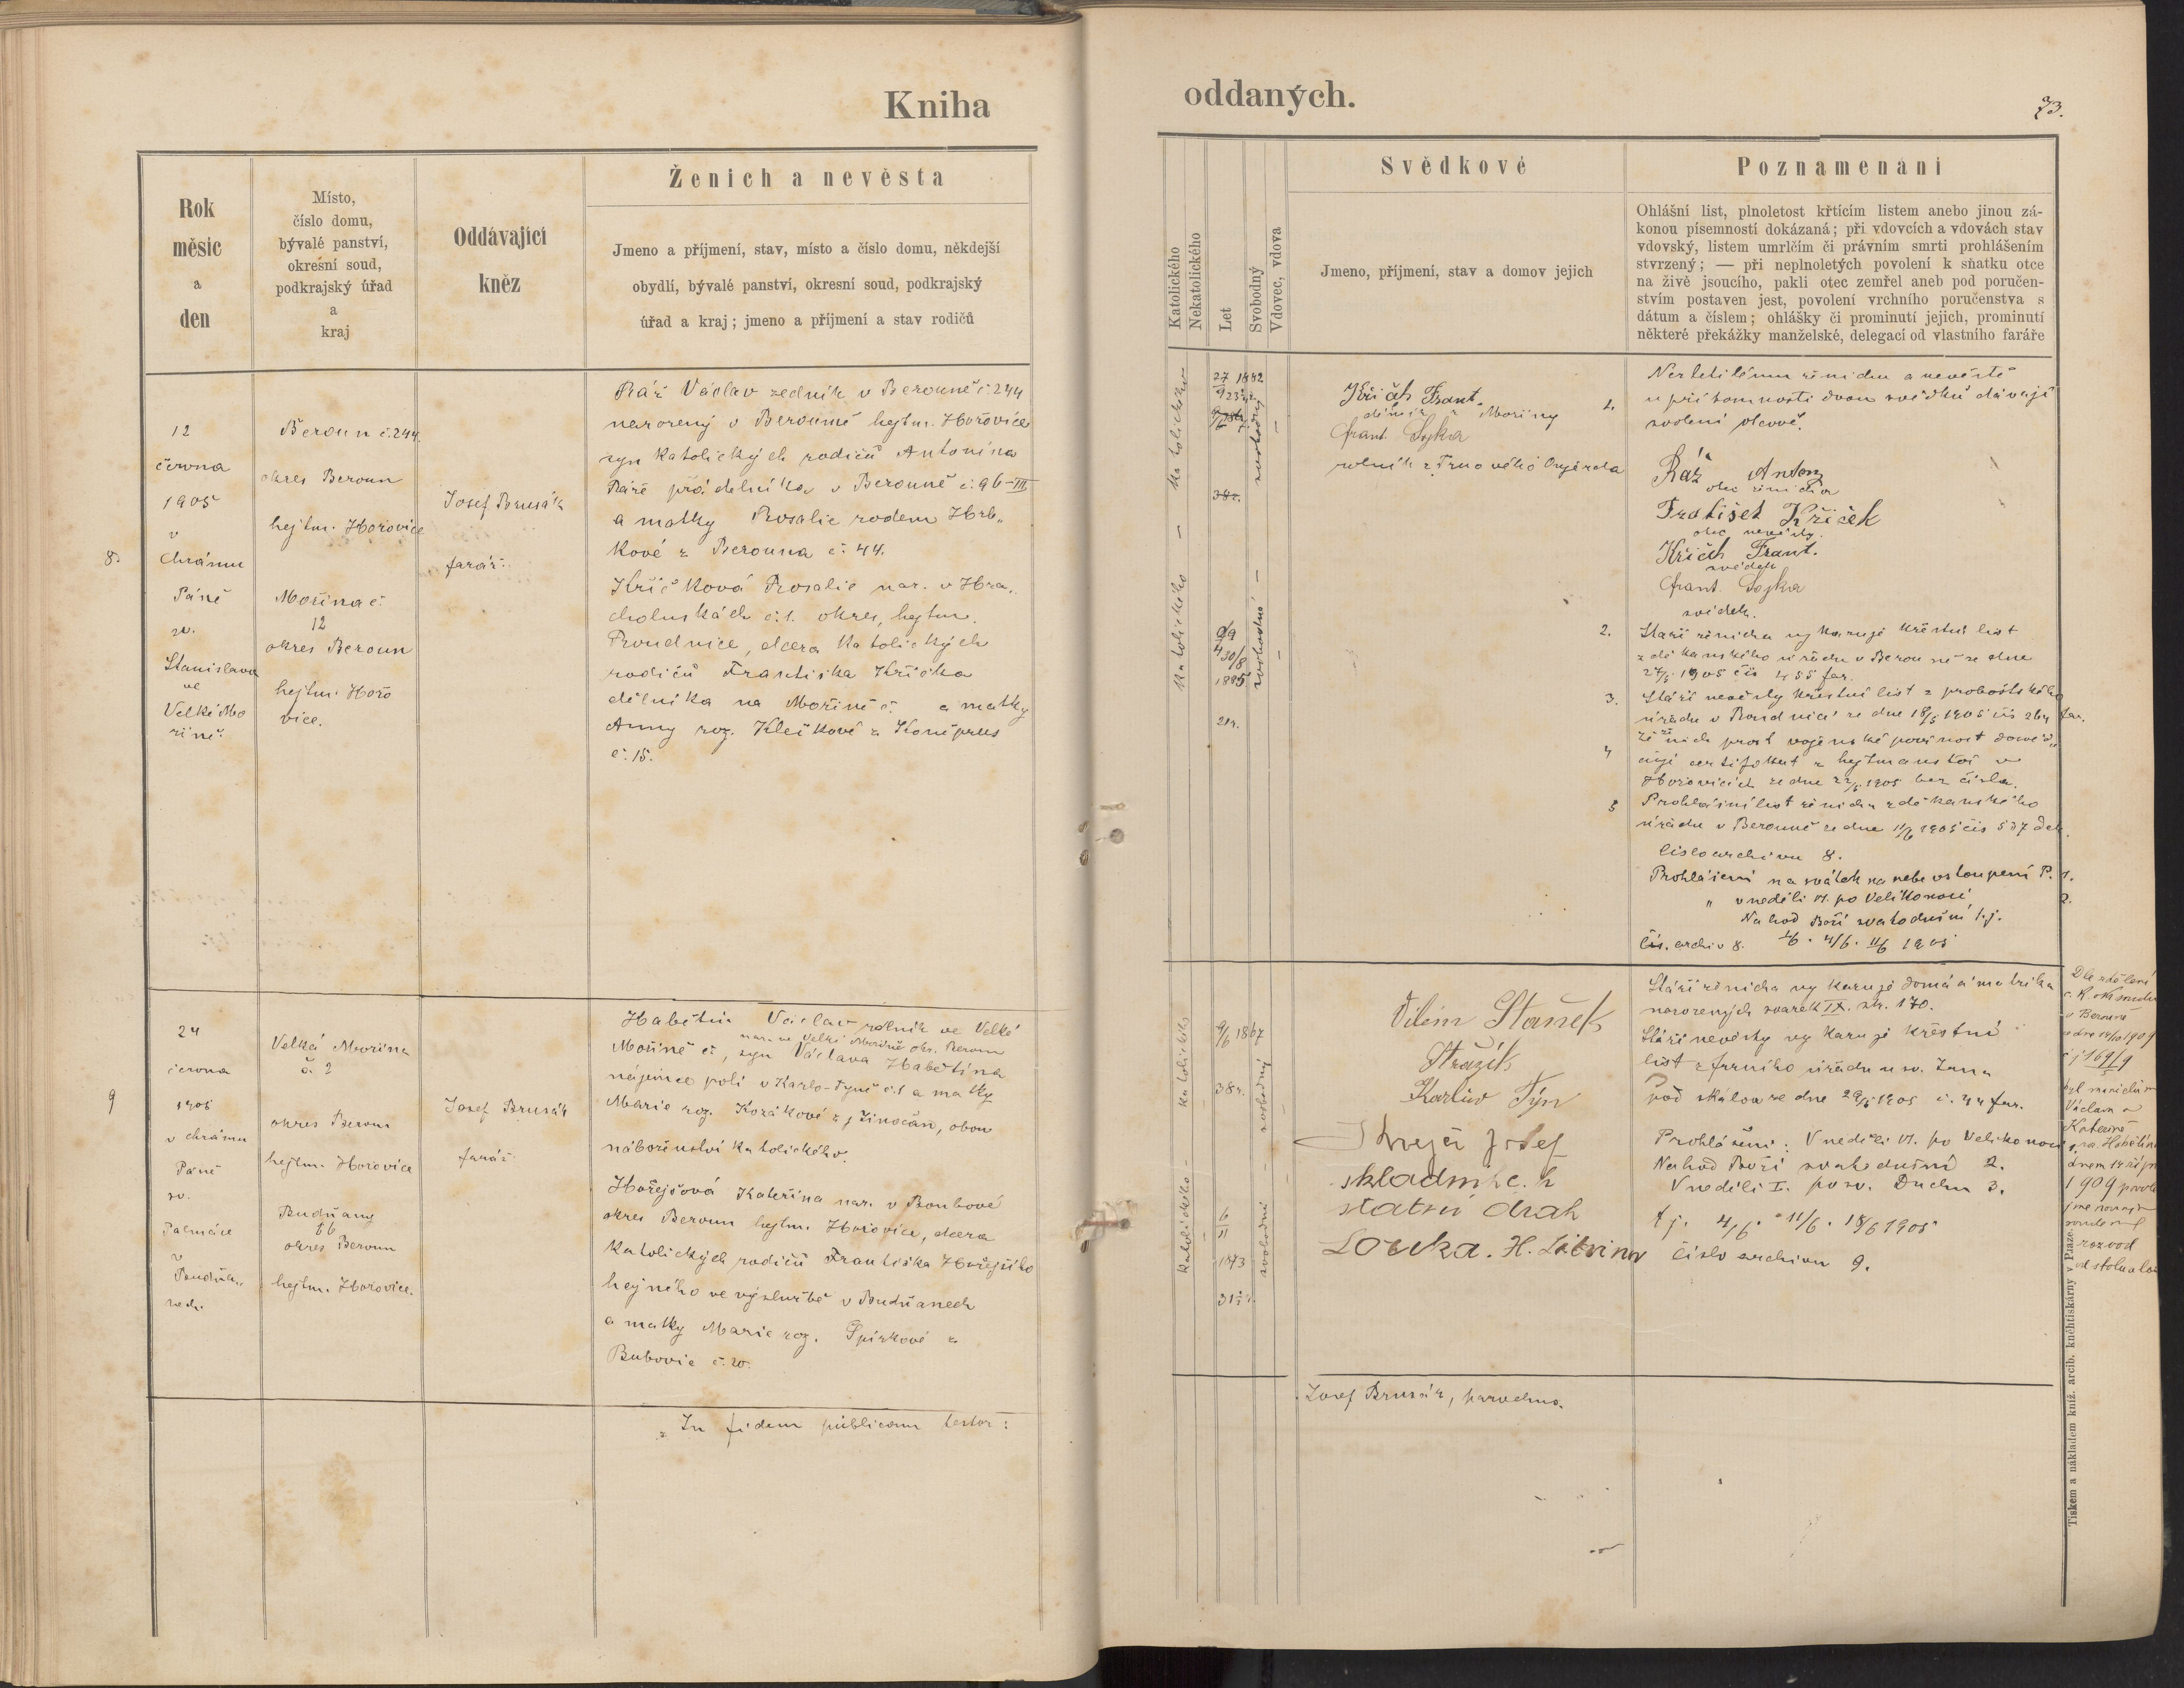 Kniha
Rok
měsíc
a
den
Místo,
číslo domu,
bývalé panství,
okresní soud,
podkrajský úřad
a
kraj
Oddávající
kněz
Ženich a nevěsta
Jmeno a příjmení, stav, místo a číslo domu, někdejší
obydlí, bývalé panství, okresní soud, podkrajský
úřad a kraj; jmeno a příjmení a stav rodičů
8.
12
června
1905
v
chrámu
Páně
sv.
Stanislava
ve
Velké Mo
řině.
Beroun č. 244.
okres Beroun
hejtm. Hořovice
Mořina č.
12
okres Beroun
hejtm. Hořo
vice.
Josef Brusák
farář.
Ráž Václav zedník v Berouně č. 244
narozený v Berouně hejtm. Hořovice
syn katolických rodičů Antonína
Ráže přádelníka v Berouně č. 96-III
a matky Rosalie rodem Hrb„
kové z Berouna č. 44.
Kříčková Rosalie nar. v Hra„
choluskách č. 1. okres, hejtm.
Roudnice, dcera katolických
rodičů Františka Kříčka
dělníka na Mořině č. a matky
Anny roz. Klečkové z Koněprus
č. 15.
9
24
června
1905
v chrámu
Páně
sv.
Palmácie
v
Budňa„
nech.
Velká Mořina
č. 2
okres Beroun
hejtm. Hořovice
Budňany
66
okres Beroun
hejtm. Hořovice.
Josef Brusák
farář.
Habětín Václav rolník ve Velké
nar. ve Velké Mořině okr. Beroun
Mořině č., syn Václava Habětína
nájemce polí v Karlo-Týně č. 1 a matky
Marie roz. Kozákové z Jinočan, obou
náboženství katolického.
Hořejšová Kateřina nar. v Boubové
okres Beroun hejtm. Hořovice, dcera
katolických rodičů Františka Hořejšího
hejného ve výslužbě v Budňanech
a matky Marie roz. Špírkové z
Bubovic č. 20.
In fidem publicam testor:
oddaných.
73.
Katolického
Nekatolického
Let
Svobodný
Vdovec, vdova
Svědkové
Jmeno, příjmení, stav a domov jejich
Poznamenání
Ohlášní list, plnoletost křtícím listem anebo jinou zá-
konou písemností dokázaná; při vdovcích a vdovách stav
vdovský, listem umrlčím či právním smrti prohlášením
stvrzený; — při neplnoletých povolení k sňatku otce
na živě jsoucího, pakli otec zemřel aneb pod poručen-
stvím postaven jest, povolení vrchního poručenstva s
dátum a číslem; ohlášky či prominutí jejich, prominutí
některé překážky manželské, delegací od vlastního faráře
katolického —
katolického
27 1882
svobodný —
svobodná —
29
4
1885
21 r.
Kříčk Frant.
dělník z Mořiny
Frant. Sojka
rolník z
1.
Nezletilému ženichu a nevěstě
u přítomnosti dvou svědků dávají
svolení otcové.
Ráž Anton
otec ženicha
Fratišet Kříček
otec nevěsty.
Kříčk Frant.
svědek
Frant. Sojka
svědek.
2. Stáří ženicha vykazuje křestní list
z děkanského úřadu v Berouně ze dne
27/5 1905 čís 455 far.
3. Stáří nevěsty křestní list z proboštského
úřadu v Roudnici ze dne 18/5 1905 čís 264 far.
4 že ženich prost vojenské povinnost dosvěd„
čuje certifikat z hejtmanství v
Hořovicích ze dne 22/5 1905 bez čísla.
5 Prohlášní list ženicha z děkanského
úřadu v Berouně ze dne 11/6 1905 čís 537 děk.
číslo archivu 8.
Prohlášení na svátek na nebe vstoupení P. 1.
„ v neděli VI. po Velikonoci 2.
Na hod Boží svatodušní t. j.
čís. archiv 8. 1/6. 4/6. 11/6 1905
katolického —
katolického
9/6 1867
38 r.
svobodný
svobodná
6
11
1873
31½ r.
Vilém Staněk
Strážík
Karlův Týn
Josef
skladník c. k
státní drah
Louka. H. Litvínov
Stáří ženicha vykazuje domácí matrika
narozených svazek IX. str. 170.
Stáří nevěsty vykazuje křestní
list z farního úřadu u sv. Jana
pod skálou ze dne 29/5 1905 č. 44 far.
Prohlášení: V neděli VI. po Velikonoci 1.
Na hod Boží svatodušní 2.
V neděli I. po sv. Duchu 3.
t j. 4/6. 11/6. 18/6 1905
číslo archivu 9.
Dle sdělení
c. k. okr. soudu
v Berouně
ze dne 14/10 1909
č j 169/9
byl manželům
Václavu a
Kateřině
Habětín
dnem 14 říj
1909 povol
rozvod
od stolu a lož
Josef Brusák, parochus.
Tiskem a nákladem kníž. arcib. kněhtiskárny v Praze